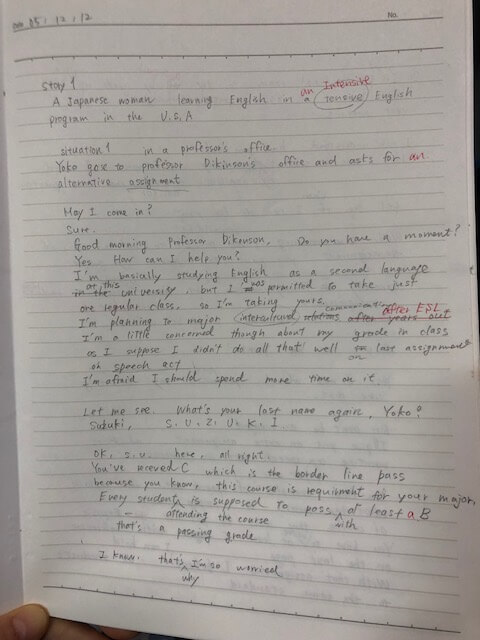 Date 05 . 12 . 12
No.
Story 1
an Intensive
A Japanese woman learning English in a tensive English
program in the U.S.A
situation 1 in a professor's office.
Yoko goes to professor Dikinson's office and asks for an
alternative assignment
May I come in?
Sure.
Good morning Professor Dikenson, Do you have a moment?
Yes How can I help you?
I'm basially studying English as a second language
at this
in the university, but I was permitted to take just
one regular class, so I'm taking yours.
communication
I'm planning to major intercultural relations after years out after ESL
I'm a little concerned though about my grade in class
as I suppose I didn't do all that well last assignment
on
on speech act
I'm afraid I should spend more time on it.
Let me see. What's your last name again, Yoko?
Suzuki, S. U. Z. U. K. I
OK, s.u. here, all right.
You've receved C which is the border line pass
because you know, this course is requirment for your major,
Every student is supposed to pass at least a B
attending the course with
that's a passing grade
I know. thats I'm so worried
why